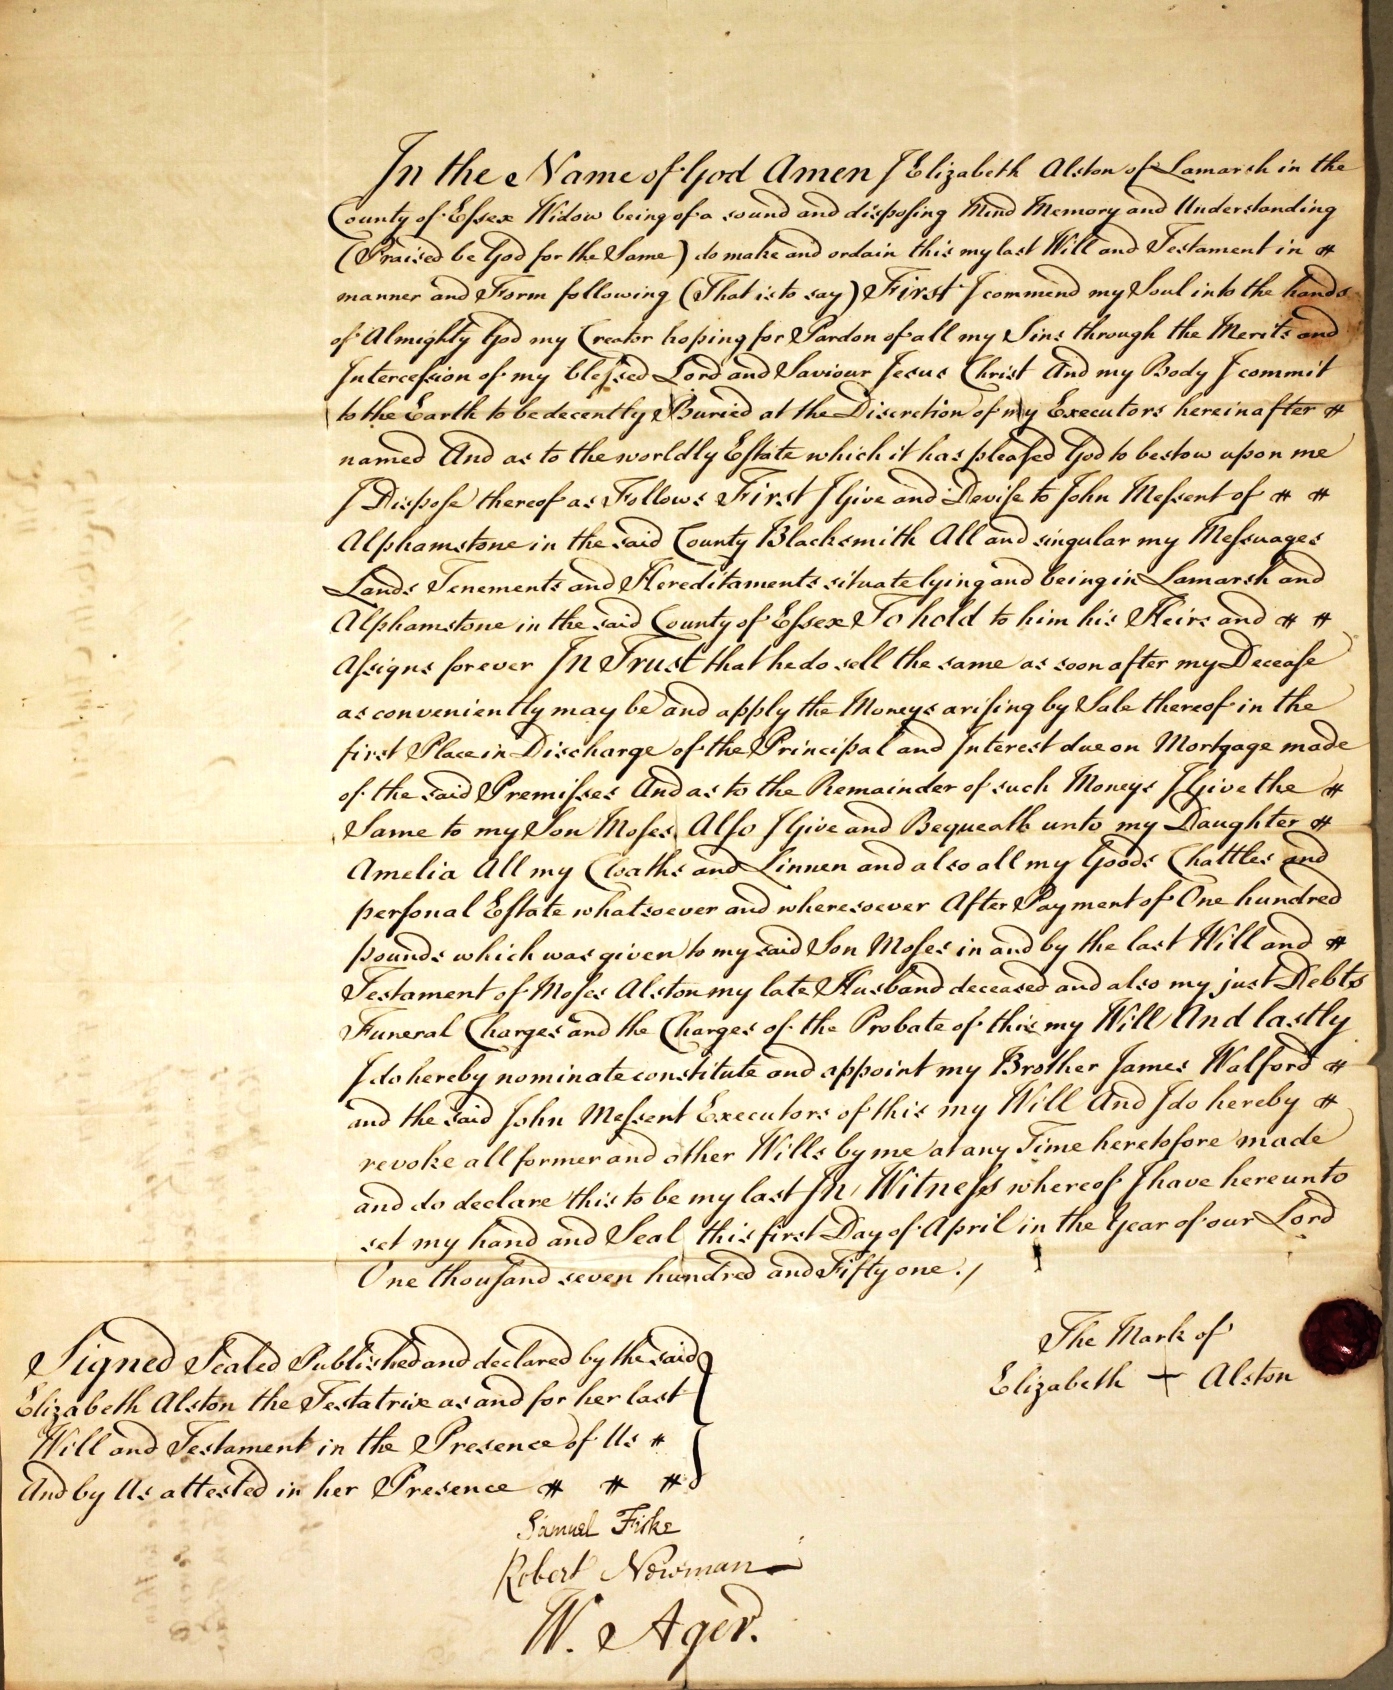 In the Name of God Amen I Elizabeth Alston of Lamarsh in the
County of Eſsex Widow being of a sound and dispoſing Mind Memory and Understanding
(Praised be God for the Same) do make and ordain this my last Will and Testament in #
manner and Form following (That is to say) First I commend my Soul into the hands
of Almighty God my Creator hoping for Pardon of all my Sins through the Merits and
Interceſsion of my bleſsed Lord and Saviour Jesus Christ And my Body I commit
to the Earth to be decently Buried at the Discretion of my Executors hereinafter #
named And as to the worldly Eſtate which it has pleaſed God to bestow upon me
I Dispoſe thereof as Follows First I Give and Deviſe to John Meſsent of # #
Alphamstone in the said County Blacksmith All and singular my Meſsuages
Lands Tenements and Hereditaments situate lying and being in Lamarsh and
Alphamstone in the said County of Eſsex To hold to him his Heirs and # #
Aſsigns forever In Trust that he do sell the same as soon after my Deceaſe
as conveniently may be and apply the Moneys ariſing by Sale thereof in the
first Place in Discharge of the Principal and Interest due on Mortgage made
of the said Premiſses And as to the Remainder of such Moneys I Give the #
Same to my Son Moſes Alſo I Give and Bequeath unto my Daughter #
Amelia All my Cloaths and Linnen and also all my Goods Chattles and
perſonal Eſtate whatsoever and wheresoever After Payment of One hundred
pounds which was given to my said Son Moſes in and by the last Will and #
Testament of Moſes Alston my late Husband deceased and also my just Debts
Funeral Charges and the Charges of the Probate of this my Will And lastly
I do hereby nominate constitute and appoint my Brother James Walford #
and the said John Meſsent Executors of this my Will And I do hereby #
revoke all former and other Wills by me at any Time heretofore made
and do declare this to be my last In Witneſs whereof I have hereunto
set my hand and Seal this first Day of April in the Year of our Lord
One thouſand seven hundred and Fifty one.
The Mark of
Elizabeth + Alston
Signed Sealed Published and declared by the said
Elizabeth Alston the Testatrix as and for her last
Will and Testament in the Presence of Us #
And by Us attested in her Presence # # #
Samuel Fiske
Robert Newman
W. Ager.